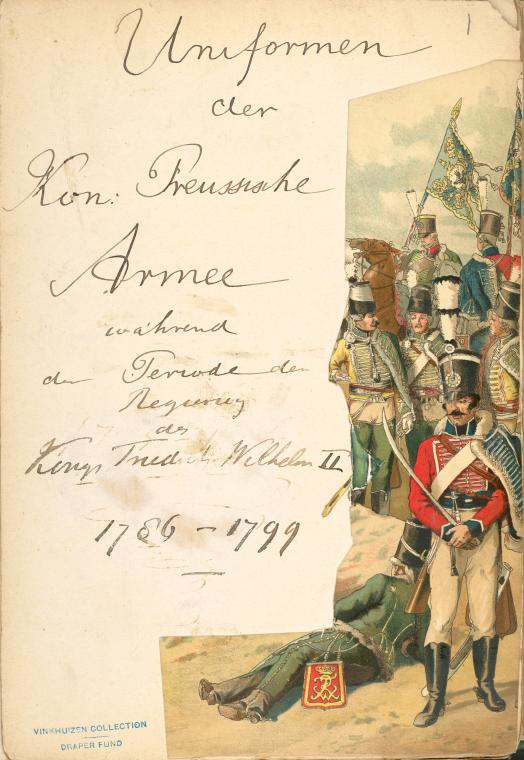 1
Uniformen
der
Kön: Preussische
Armee
während
der Periode der
Regierung
des
Königs Friedrich Wilhelm II
1786 – 1799
VINKHUIZEN COLLECTION
DRAPER FUND